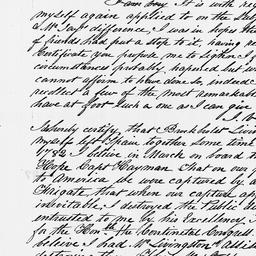 I am sorry. It is with reg
myself again applied to on the Sub
& Mr Jay's difference, I was in hopes tha
of friends had put a stop to it, having re
Certificate you propose me to sign. I f
circumstances probably happened but w
cannot affirm to have done so, indeed
recollect a few of the most remarkable
have at foot such a one as I can give
I h
I hereby certify, that Brukholst Livin
myself left Spain together some time
1782 I believe in March on board th
Hope Capt Hayman that on our p
to America we were captured by a
Frigate that when our capture a
inevitable I destroyed the Public De
entrusted to me by his Excellency J
for the Honble the Continental Congress
believe I had Mr Livingston's assis